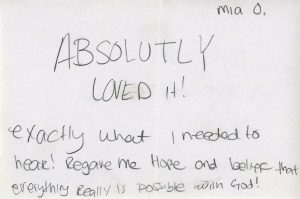 mia O.
ABSOLUTLY
LOVED it!
exactly what I needed to
hear! Regave me Hope and that
everything Really is possible with God!